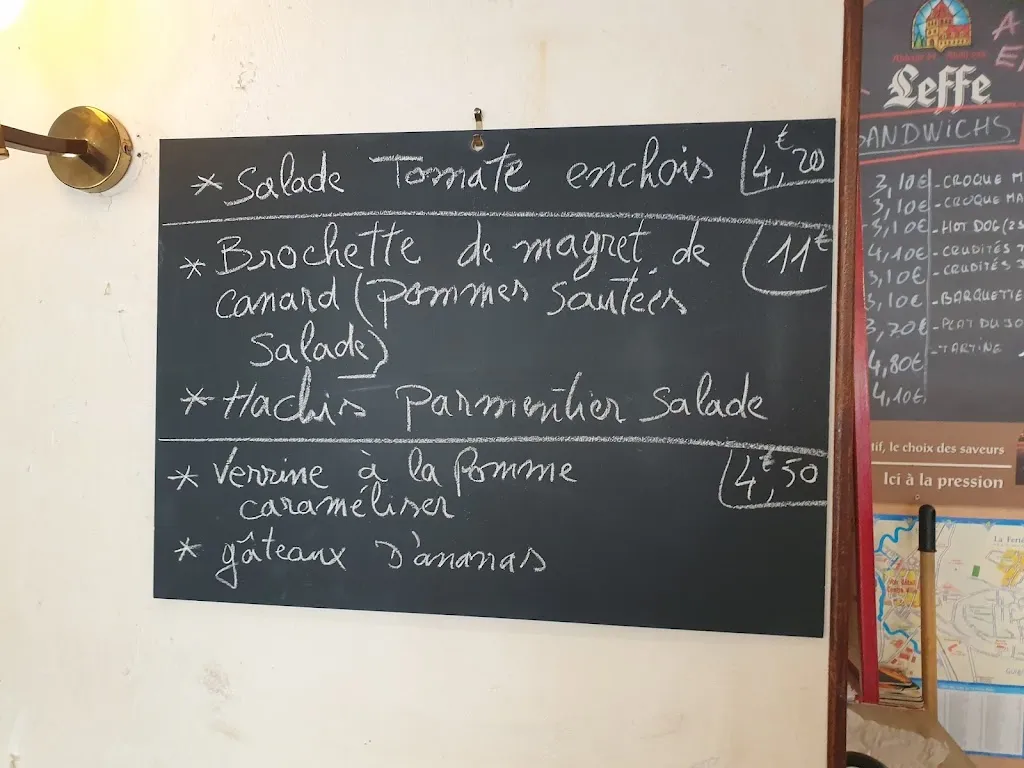 * Salade Tomate enchois 4€,20
* Brochette de magret de 11€
canard (pommes sautées
salade)
* Hachis parmentier salade
* Verrine à la pomme 4€,50
caraméliser
* gâteaux D'ananas
Leffe
SANDWICHS
3,10€ - CROQUE M
3,10€ - CROQUE MA
3,10€ - HOT DOG (2s
4,10€ - CRUDITÉS
3,10€ - CRUDITÉS
3,10€ - BARQUETTE
3,20€ - PLAT DU JO
4,80€ - TARTINE
4,10€
tif, le choix des saveurs
Ici à la pression
La Ferté